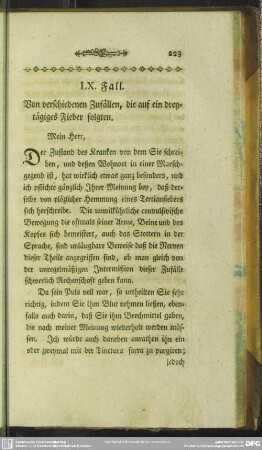 223
LX. Fall.
Von verschiedenen Zufällen, die auf ein drey-
tägiges Fieber folgten.
Mein Herr,
Der Zustand des Kranken von dem Sie schrei-
ben, und dessen Wohnort in einer Marsch-
gegend ist, hat wirklich etwas ganz besonders, und
ich pflichte gänzlich Ihrer Meinung bey, daß der-
selbe von plözlicher Hemmung eines Tertianfiebers
sich herschreibe. Die unwillkührliche convulsivische
Bewegung die oftmals seiner Arme, Beine und des
Kopfes sich bemeistert, auch das Stottern in der
Sprache, sind unläugbare Beweise daß die Nerven
dieser Theile angegriffen sind, ob man gleich von
der unregelmäßigen Intermißion dieser Zufälle
schwerlich Rechenschaft geben kann.
Da sein Puls voll war, so urtheilten Sie sehr
richtig, indem Sie ihm Blut nehmen liessen, eben-
falls auch darin, daß Sie ihm Brechmittel gaben,
die nach meiner Meinung wiederholt werden müs-
sen. Ich würde auch daneben anrathen ihn ein
oder zweymal mit der Tinctura sacra zu purgiren;
jedoch